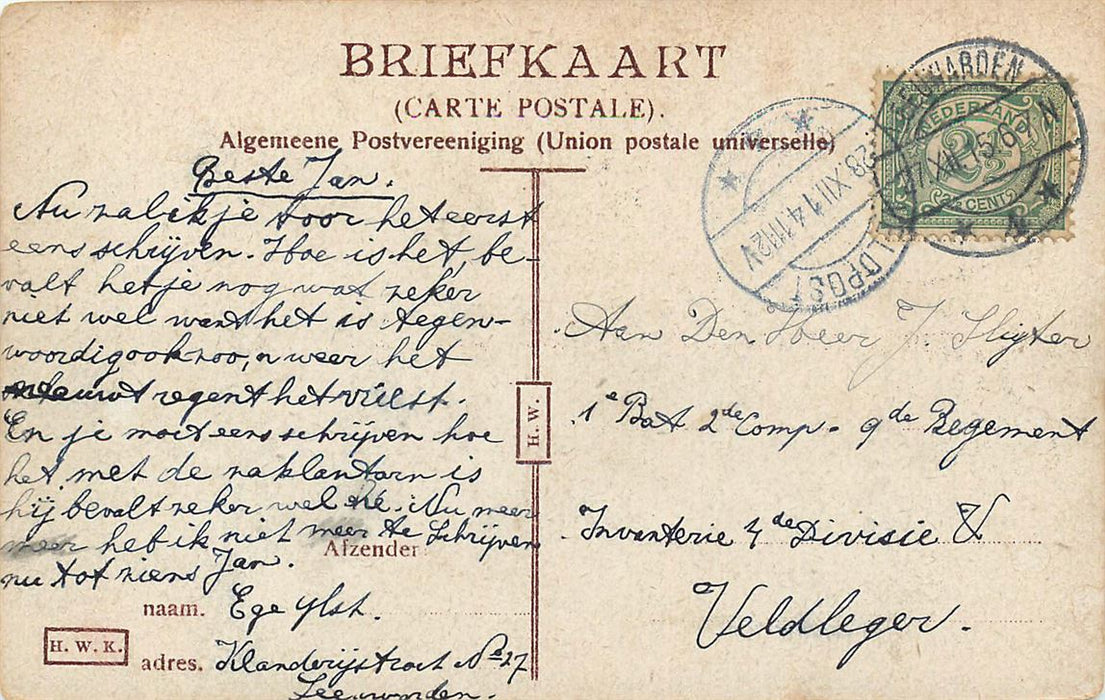 BRIEFKAART
(CARTE POSTALE).
Algemeene Postvereeniging (Union postale universelle)
LEEUWARDEN
27.XII.15 6-7 N
4
NEDERLAND
2½
CENT
28.XII.14 11-12V
VELDPOST
Beste Jan.
Nu zal ik je voor het eerst
eens schrijven. Hoe is het, be-
valt het je nog wat zeker
niet wel want het is tegen-
woordig ook zoo, n weer het
regent het vuilst.
En je moet eens schrijven hoe
het met de zaklantarn is
hij bevalt zeker wel hé. Nu meer
heb ik niet meer te Schrijven
nu tot ziens Jan.
Afzender:
naam. Ege Ylst.
adres. Klanderijstraat No 27
Leeuwarden.
H. W. K.
H. W.
Aan Den Heer J. Sligter
1e Bat 2de Comp. 9de Regement
Invanterie 4de Divisie
Veldleger.